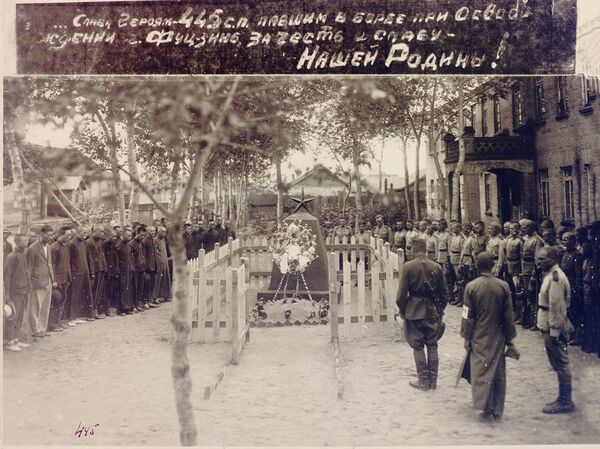 ... Слава Героям - 445 с.п. павшим в борье при Освобо-
ждении г. Фуцзинь, за честь и славу -
Нашей Родины!
445